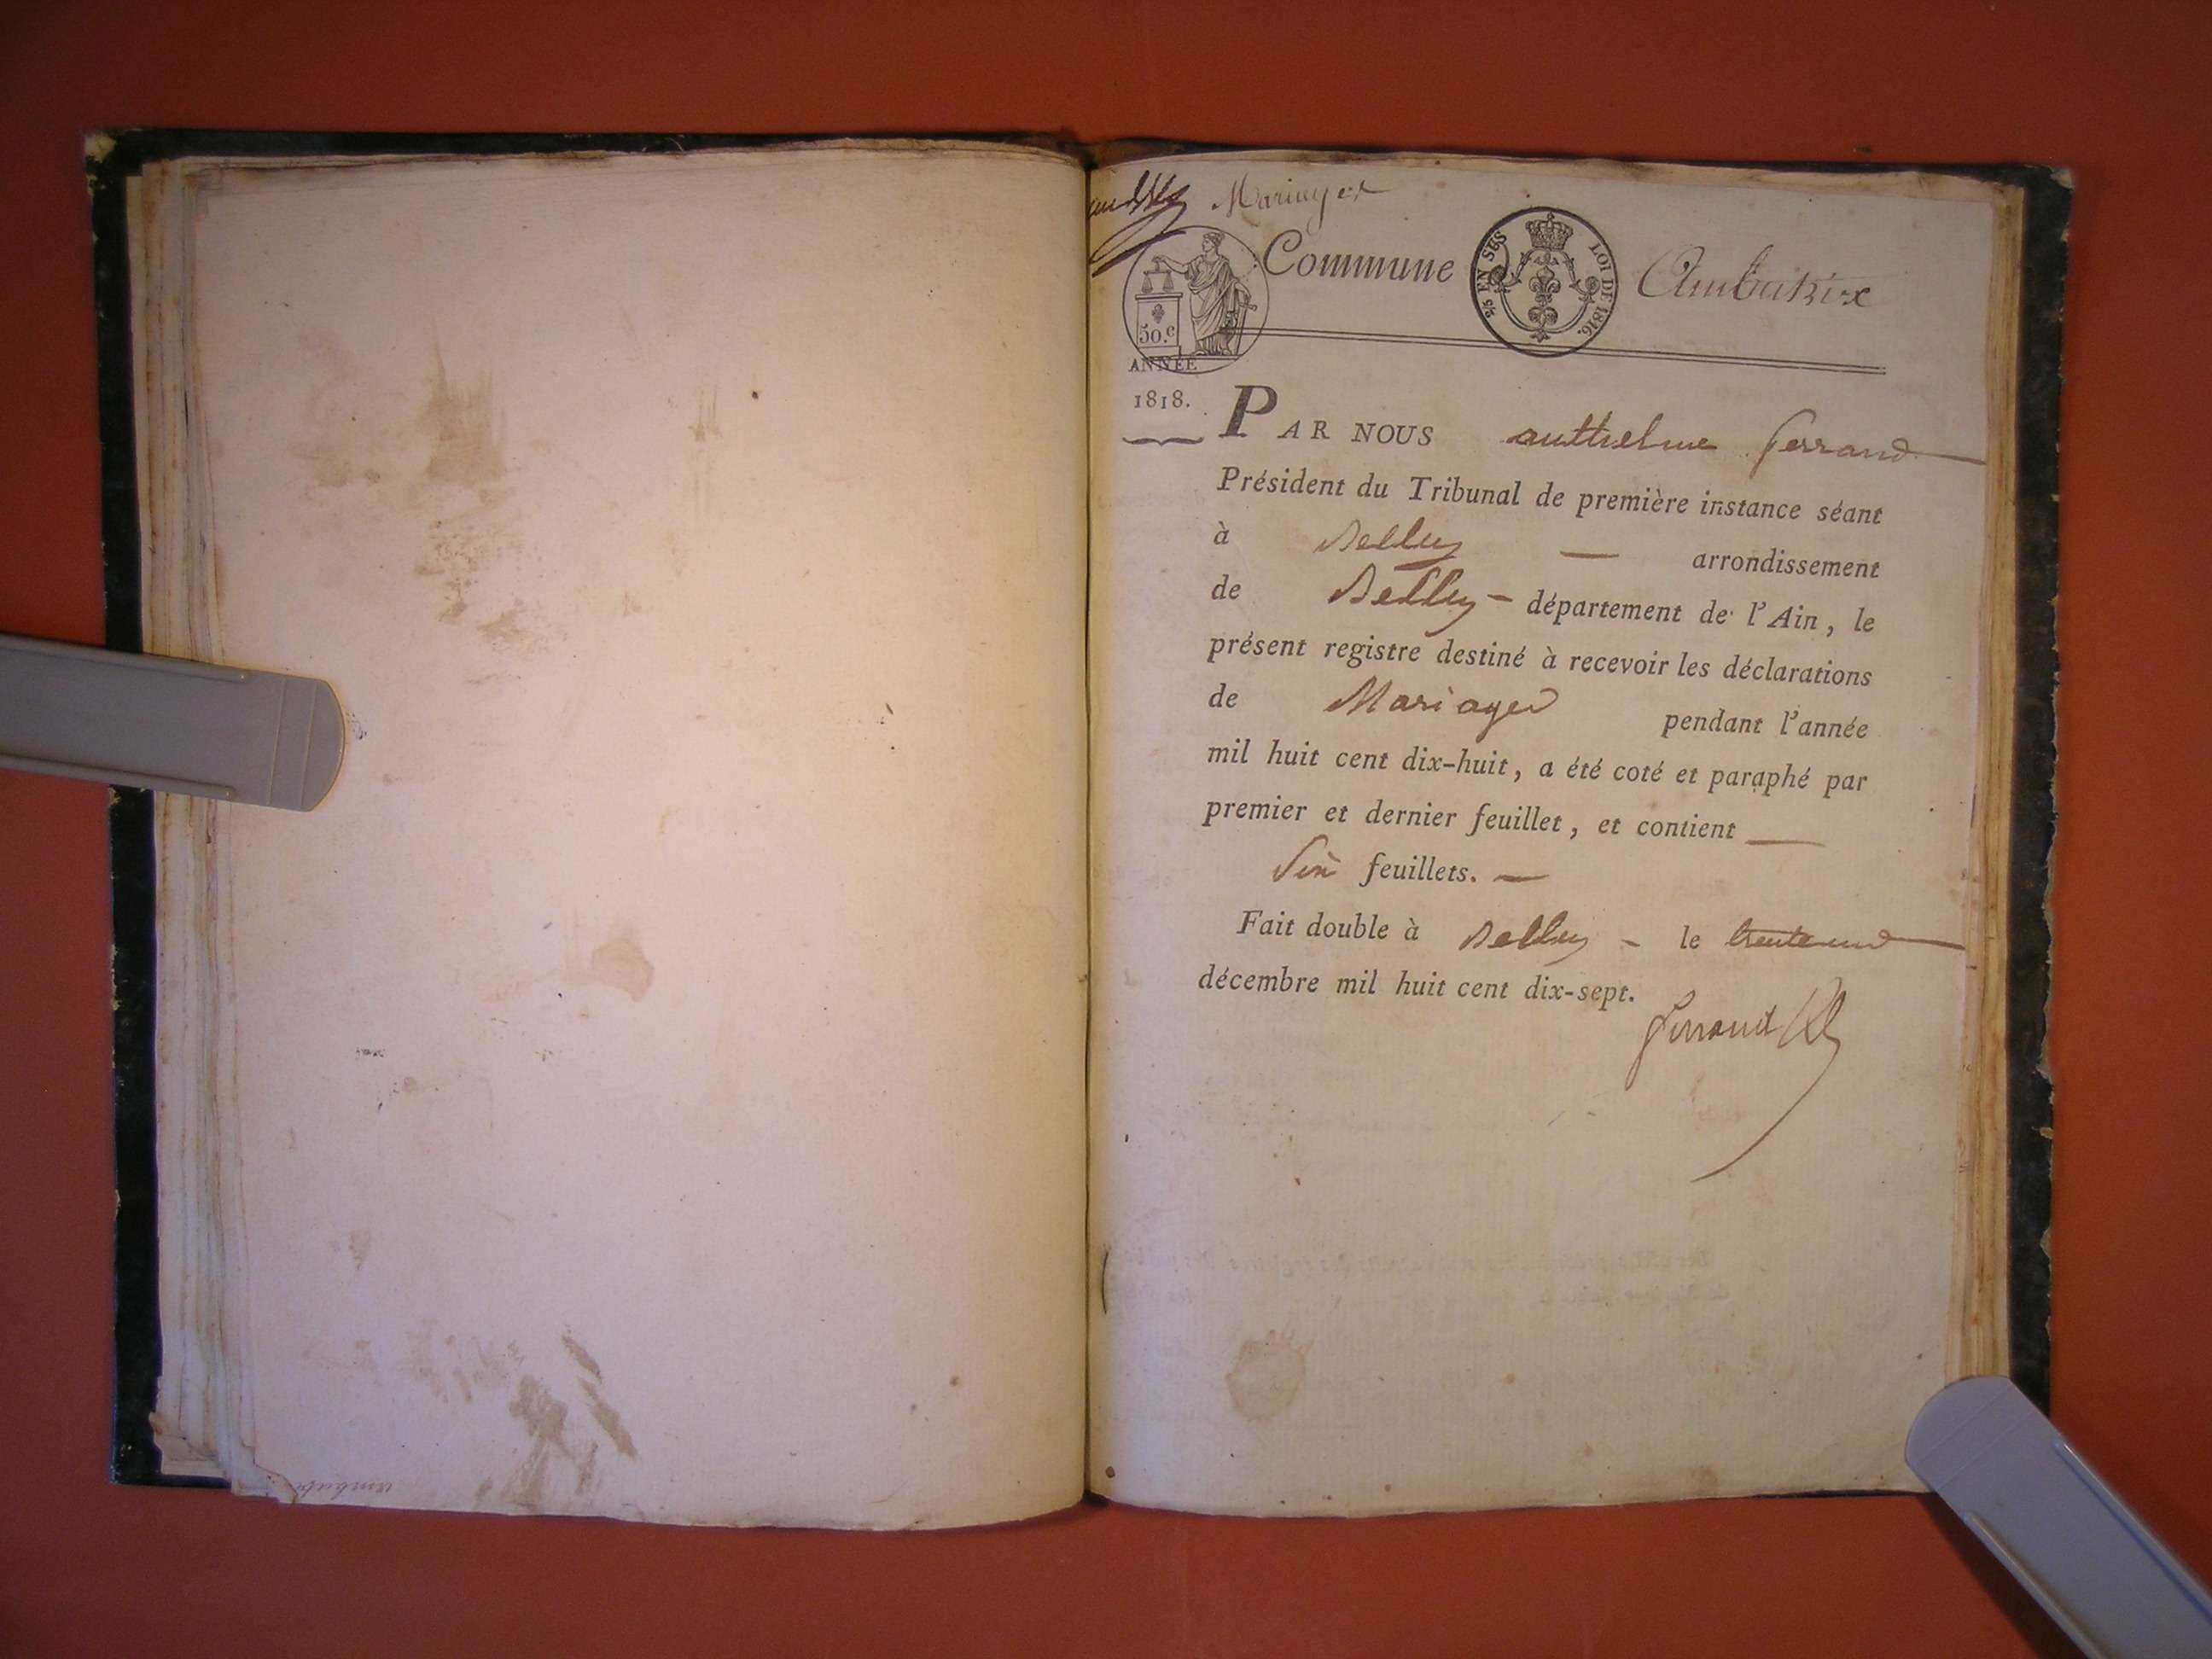 Mariages
Commune Ambutrix
2/5 EN SUS LOI DE 1816.
50.c
ANNÉE
1818.
PAR NOUS anthelme ferrand
Président du Tribunal de première instance séant
à Belley — arrondissement
de Belley – département de l'Ain, le
présent registre destiné à recevoir les déclarations
de Mariages pendant l'année
mil huit cent dix-huit, a été coté et paraphé par
premier et dernier feuillet, et contient —
Six feuillets. —
Fait double à Belley – le trente un
décembre mil huit cent dix-sept.
ferrand